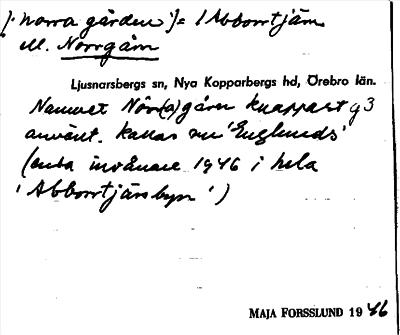 ['norra gården']= 1 Abborrtjärn
ell. Norrgårn
Ljusnarsbergs sn, Nya Kopparbergs hd, Örebro län.
Namnet Nörr(a)gårn knappast g3
använt. Kallas nu 'Englunds'
(enda invånare 1946 i hela
'Abborrtjärnsbyn')
MAJA FORSSLUND 1946